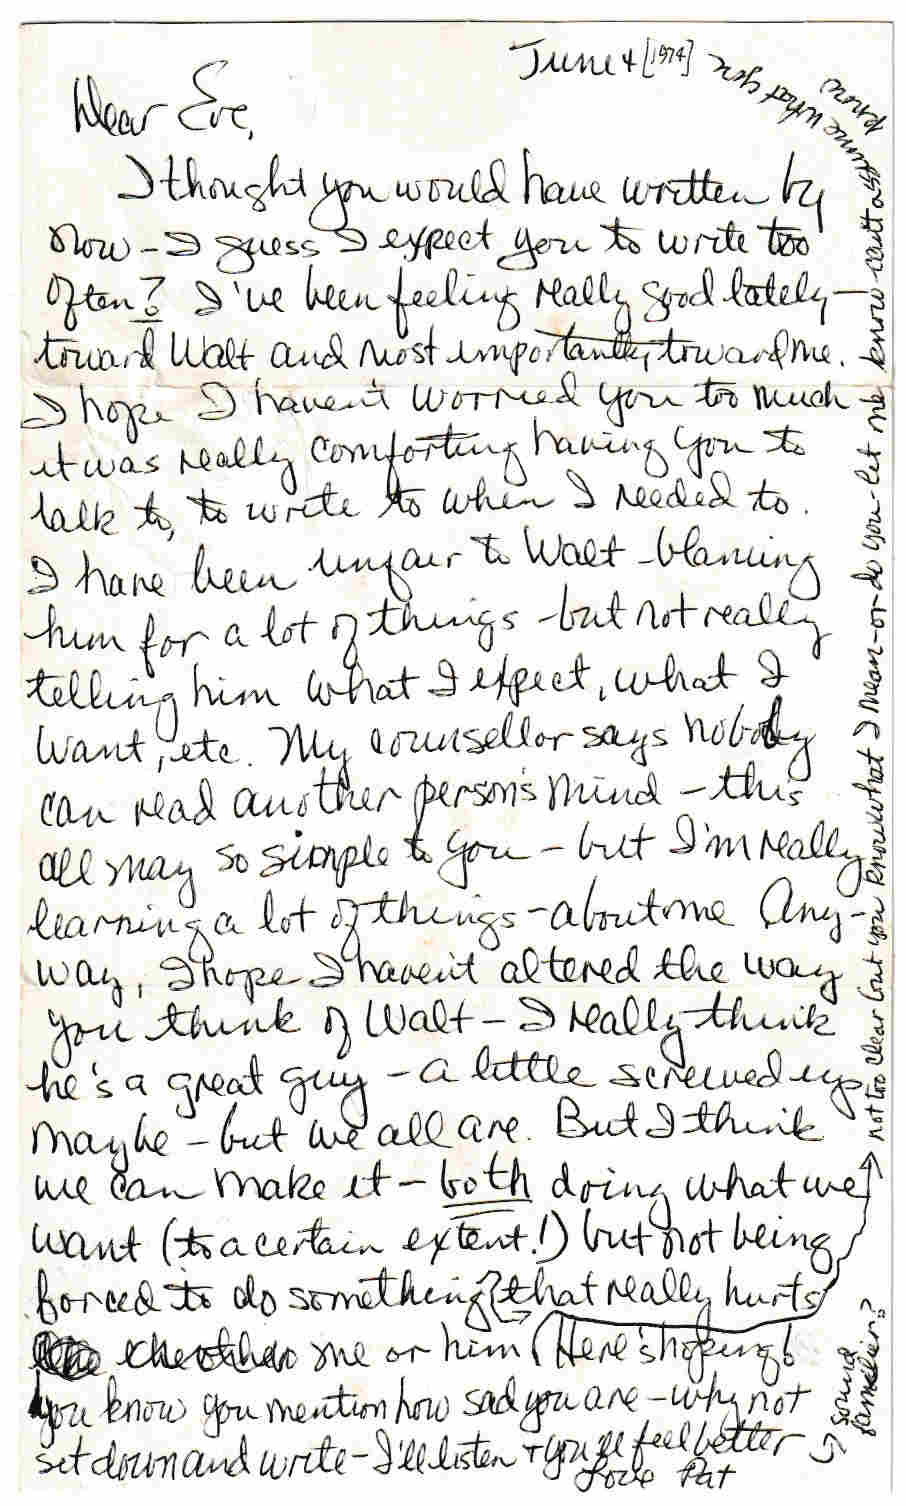 June 4 [1974]
Dear Eve,
I thought you would have written by
now - I guess I expect you to write too
often? I've been feeling really good lately -
toward Walt and most importantly, toward me.
I hope I haven't worried you too much
it was really comforting having you to
talk to, to write to when I needed to.
I have been unfair to Walt - blaming
him for a lot of things - but not really
telling him what I expect, what I
want, etc. My counsellor says nobody
can read another person's mind - this
all may so simple to you - but I'm really
learning a lot of things - about me Any-
way, I hope I haven't altered the way
you think of Walt - I really think
he's a great guy - a little screwed up
maybe - but we all are. But I think
we can make it - both doing what we
want (to a certain extent!) but not being
forced to do something? that really hurts
me or him (Here's hoping!
you know you mention how sad you are - why not
set down and write - I'll listen + you'll feel better
Love Pat
not too clear but you know what I mean - or do you - let me know - can't assume what you
know
↳ sound
familiar?